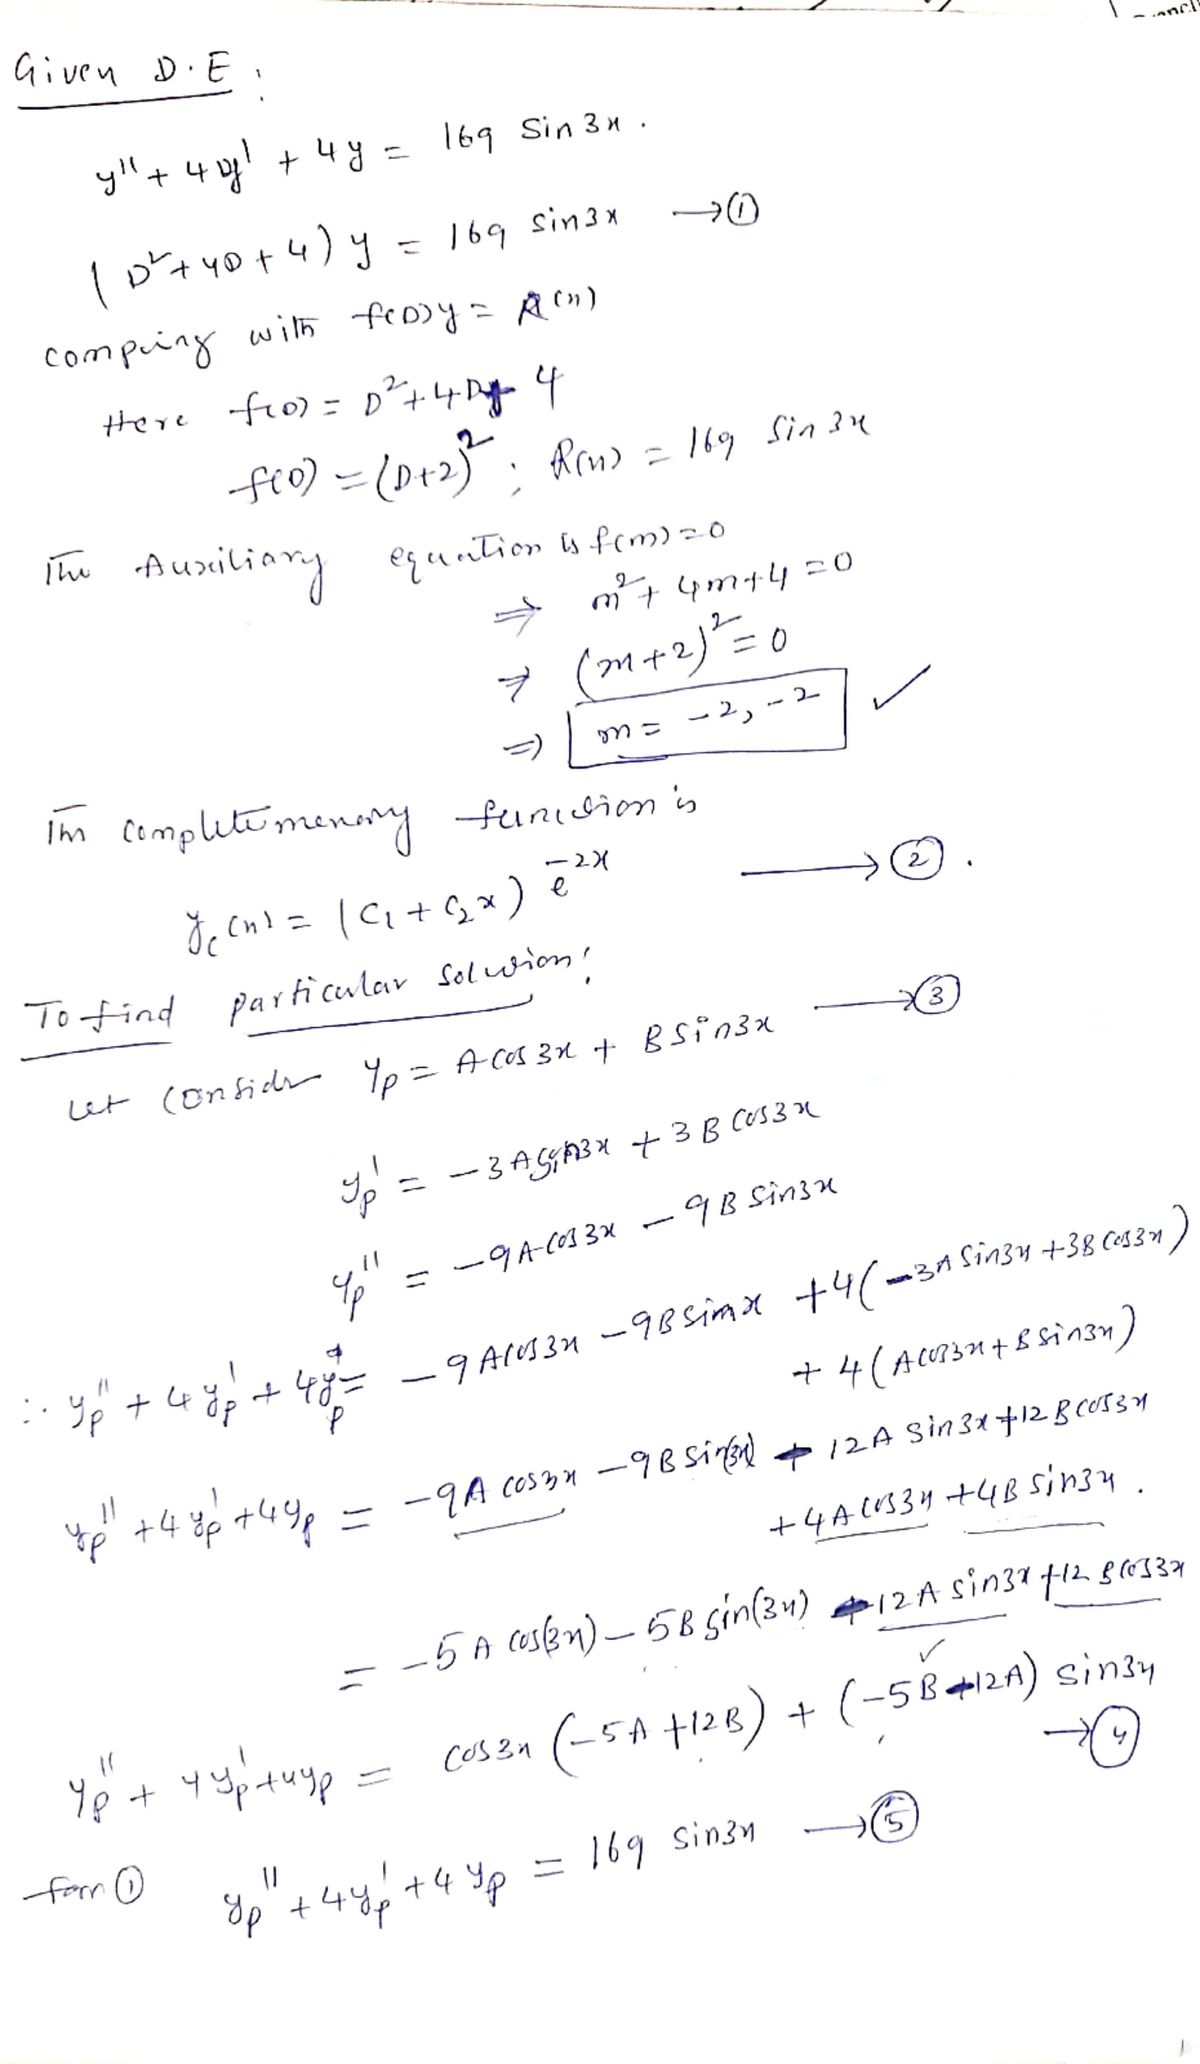 Given D.E :
y'' + 4y' + 4y = 169 Sin 3x .
(D² + 4D + 4) y = 169 sin 3x → ①
compring with f(D)y = R(x)
Here f(D) = D² + 4D + 4
f(D) = (D+2)² ; R(x) = 169 Sin 3x
The Auxiliary equation is f(m) = 0
⇒ m² + 4m + 4 = 0
⇒ (m+2)² = 0
⇒ m = -2, -2 ✓
The completemenary function is
y_c(x) = (C₁ + C₂x) e^{-2x} → ② .
To find particular solution :
Let consider y_p = A cos 3x + B sin 3x → ③
y_p' = -3A sin 3x + 3B cos 3x
y_p'' = -9A cos 3x - 9B sin 3x
∴ y_p'' + 4y_p' + 4y_p = -9A cos 3x - 9B sin x + 4(-3A sin 3x + 3B cos 3x)
+ 4(A cos 3x + B sin 3x)
y_p'' + 4y_p' + 4y_p = -9A cos 3x - 9B sin(3x) - 12A sin 3x + 12B cos 3x
+ 4A cos 3x + 4B sin 3x .
= -5A cos(3x) - 5B sin(3x) - 12A sin 3x + 12B cos 3x
y_p'' + 4y_p' + 4y_p = cos 3x (-5A + 12B) + (-5B - 12A) sin 3x
→ ④
form ① y_p'' + 4y_p' + 4y_p = 169 sin 3x → ⑤